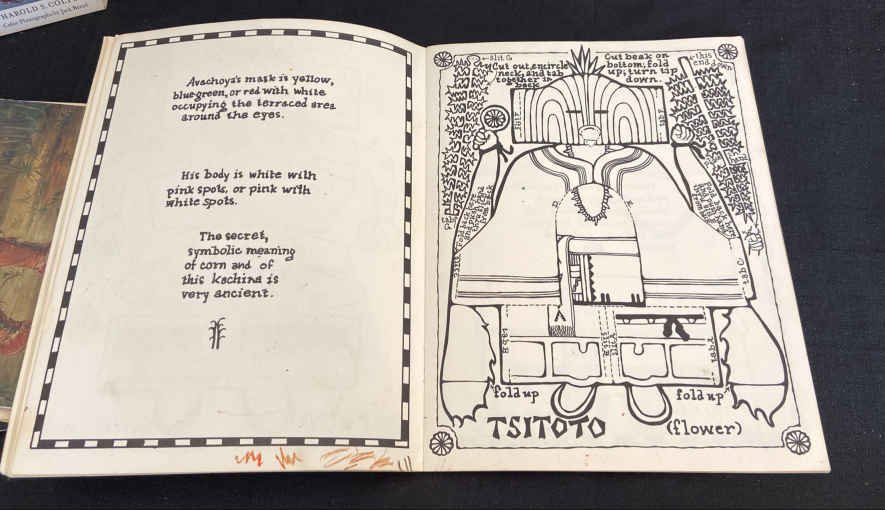 HAROLD S. COL
Color Photographs by Jack Breed
Avachoya's mask is yellow,
blue-green, or red with white
occupying the terraced area
around the eyes.
His body is white with
pink spots, or pink with
white spots.
The secret,
symbolic meaning
of corn and of
this kachina is
very ancient.
slit C
Cut out, encircle
neck, and tab
together in
back
Cut beak on
bottom, fold
up; turn tip
down.
this
end down
tab C
tab B
slit B
slit A
tab A
fold up
fold up
TSITOTO
(flower)